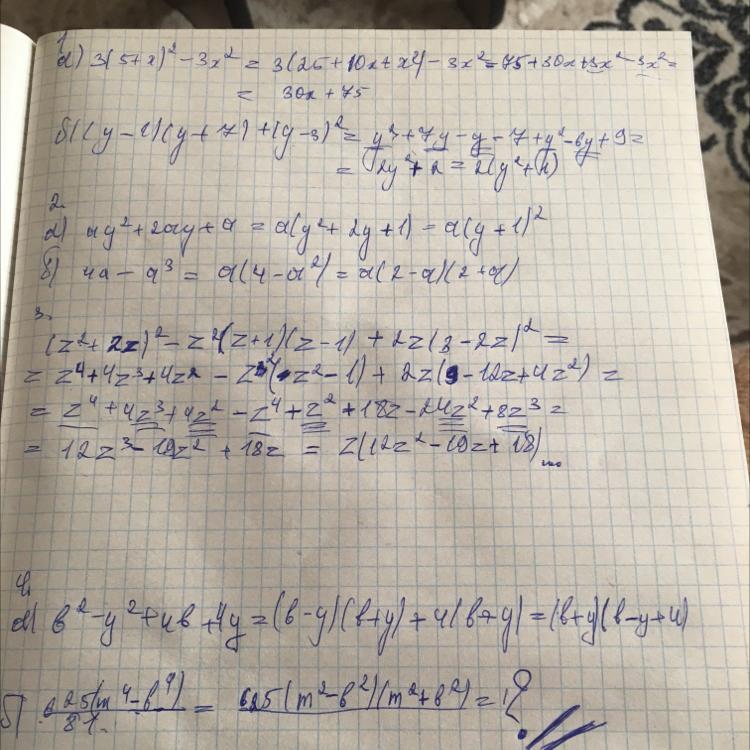 1
а) 3(5+x)² - 3x² = 3(25+10x+x²) - 3x² = 75+30x+3x² - 3x² =
= 30x + 75
б) (y-1)(y+7) + (y-3)² = y²+7y-y-7+y²-6y+9 =
= 2y²+2 = 2(y²+1)
2.
а) ay²+2ay+a = a(y²+2y+1) = a(y+1)²
б) 4a - a³ = a(4-a²) = a(2-a)(2+a)
3.
(z²+2z)² - z²(z+1)(z-1) + 2z(3-2z)² =
= z⁴+4z³+4z² - z²(z²-1) + 2z(9-12z+4z²) =
= z⁴+4z³+4z²-z⁴+z²+18z-24z²+8z³ =
= 12z³-19z²+18z = z(12z²-19z+18)
4.
а) b²-y²+4b+4y = (b-y)(b+y)+4(b+y) = (b+y)(b-y+4)
б) 625(m⁴-b⁴) = 625(m²-b²)(m²+b²) = ?
81